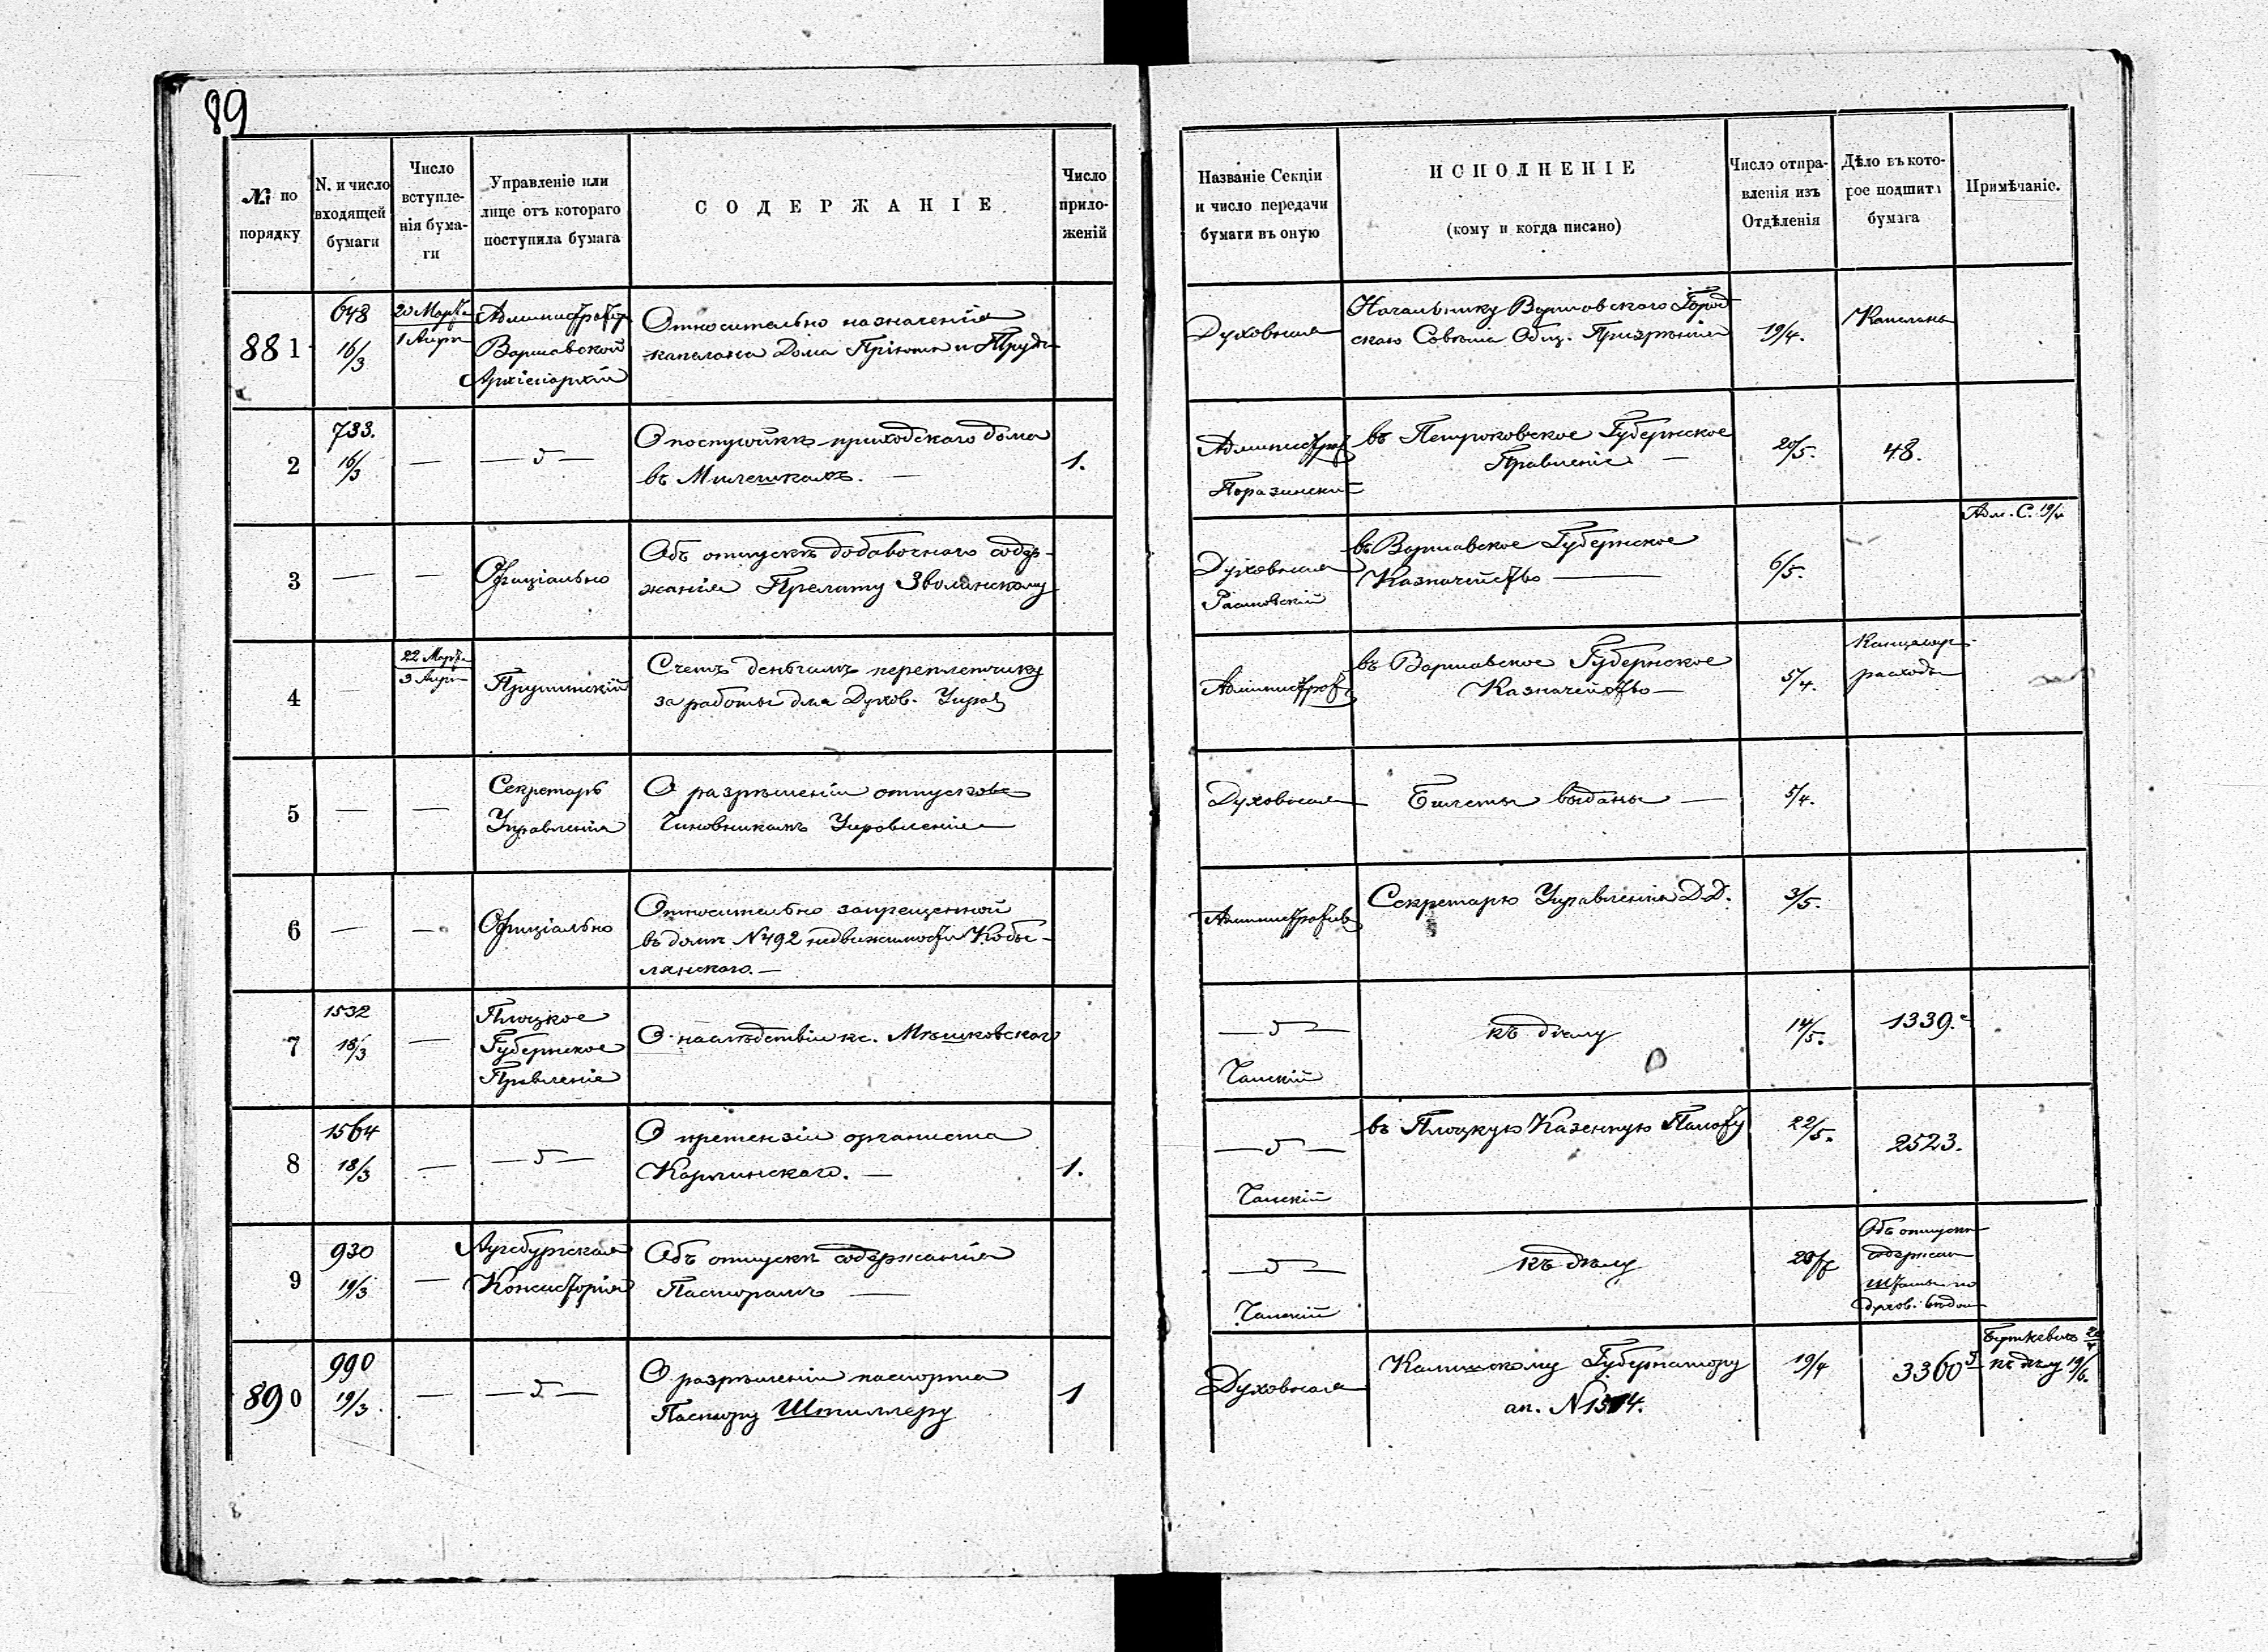 89
№ по порядку
N. и число входящей бумаги
Число вступле-нія бума-ги
Управленіе или лице отъ котораго поступила бумага
СОДЕРЖАНІЕ
Число прило-женій
Названіе Секціи и число передачи бумаги въ оную
ИСПОЛНЕНІЕ
(кому и когда писано)
Число отпра-вленія изъ Отдѣленія
Дѣло въ кото-рое подшита бумага
Примѣчаніе.
881
648
16/3
20 Марта
1 Апр
Администраторъ
Варшавской
Архіепархіи
Относительно назначенія
капелана Дома Пріюта и Труда
Духовная
Начальнику Варшовскаго Город
скаго Совѣта Общ. Призрѣнія
19/4.
Капеланы
2
733.
16/3
—
— " —
О постройкѣ приходскаго дома
въ Милешкахъ. —
1.
Администрат
въ Петроковское Губернское
Правленіе —
20/5.
48.
3
—
—
Офиціально
Объ отпускѣ добавочнаго содер-
жанія Прелату Зволинскому
Духовная
въ Варшавское Губернское
Казначейство —
6/5.
Адм. С. 19/4
4
—
22 Марта
3 Апр
Прушинскій
Счетъ деньгамъ переплетчику
за работы для Духов. Управ
Администрат
въ Варшавское Губернское
Казначейство —
5/4.
Канцеляр
расходы
5
—
—
Секретарь
Управленія
О разрѣшеніи отпусковъ
Чиновникамъ Управленія
Духовная
Билеты выданы —
5/4.
6
—
—
Офиціально
Относительно запрещенной
въ домѣ N 492 недвижимости Кобы-
лянскаго. —
Административ
Секретарю Управленія Д.Д.
3/5.
7
1532
18/3
—
Плоцкое
Губернское
Правленіе
О наслѣдствіи кс. Мѣшковскаго
— " —
Чамскій
къ дѣлу
14/5.
1339.
8
1564
18/3
—
— " —
О претензіи органиста
Карпинскаго. —
1.
— " —
Чамскій
въ Плоцкую Казенную Палату
22/5.
2523.
9
930
19/3
—
Аугсбургская
Консисторія
Объ отпускѣ содержанія
Пасторамъ —
— " —
Чамскій
къ дѣлу
Объ отпускѣ
содержан
Штаты по
духов. вѣдом
890
990
19/3
—
— " —
О разрѣшеніи паспорта
Пастору Штиллеру
1
Духовная
Калишскому Губернатору
ап. N 1514.
19/4
3360
Буткевичъ
къ дѣлу 19/6.